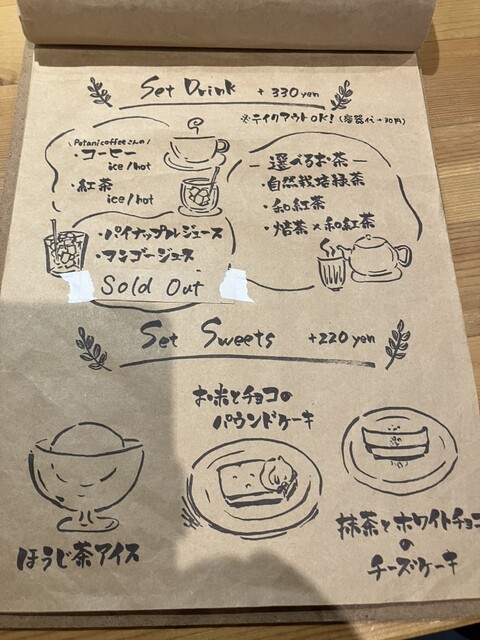 Set Drink +330yen
※テイクアウトOK!(容器代+30円)
\Potanicoffeeさんの/
・コーヒー
ice/hot
・紅茶
ice/hot
・パイナップルジュース
・マンゴージュース
Sold Out
―選べるお茶―
・自然栽培緑茶
・和紅茶
・焙茶×和紅茶
Set Sweets +220yen
お米とチョコの
パウンドケーキ
ほうじ茶アイス
抹茶とホワイトチョコ
の
チーズケーキ